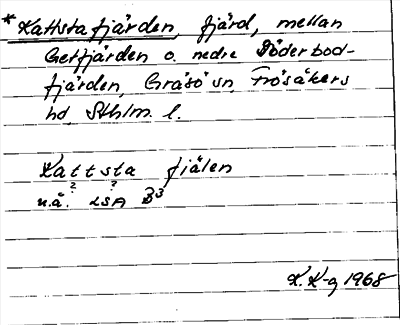 * Kattstafjärden, fjärd, mellan
Getfjärden o. nedre Söderbod-
fjärden, Gräsö sn, Frösåkers
hd, Sthlm. l.
Kattsta fjälen
u.å. LSA B3
K. K-g 1968